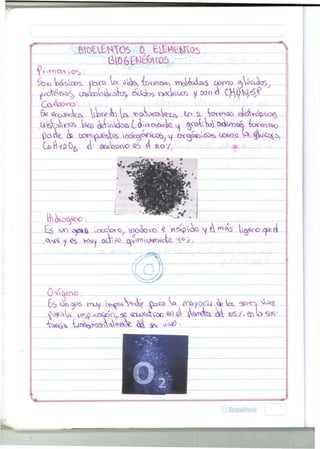 BIOELEMTOS O ELEMENTOS
BIOGENÉSICOS
Primarios:
Son básicos para la vida forman moléculas como glúcidos,
proteínas, carbohidratos, ácidos nucleicos y son el CHONSP
Carbono:
Se encuentra libre en la naturaleza en 2 formas alotrópicas
cristalinas bien definidas (diamante y grafito) además forma
parte de compuestos inorgánicos, y orgánicos como la glucosa
C6H12O6 el carbono es el 20%.
Hidrogeno:
Es un gas incoloro, inodoro e insípido y el más ligero que el
aire y es muy activo químicamente 10%.
Oxígeno:
Es un gas muy importante para la mayoría de los seres vivos
para la respiración, se encuentra en el planeta del 65% en la sus-
tancia fundamentalmente del ser vivo.
O2
Stanford